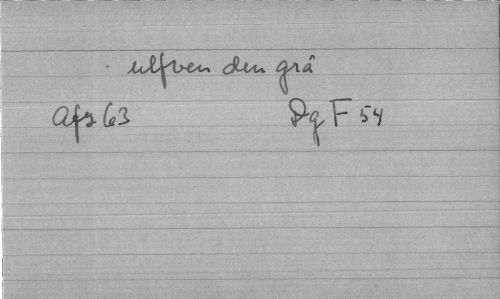 ulfven den grå
Afz 63 DgF 54